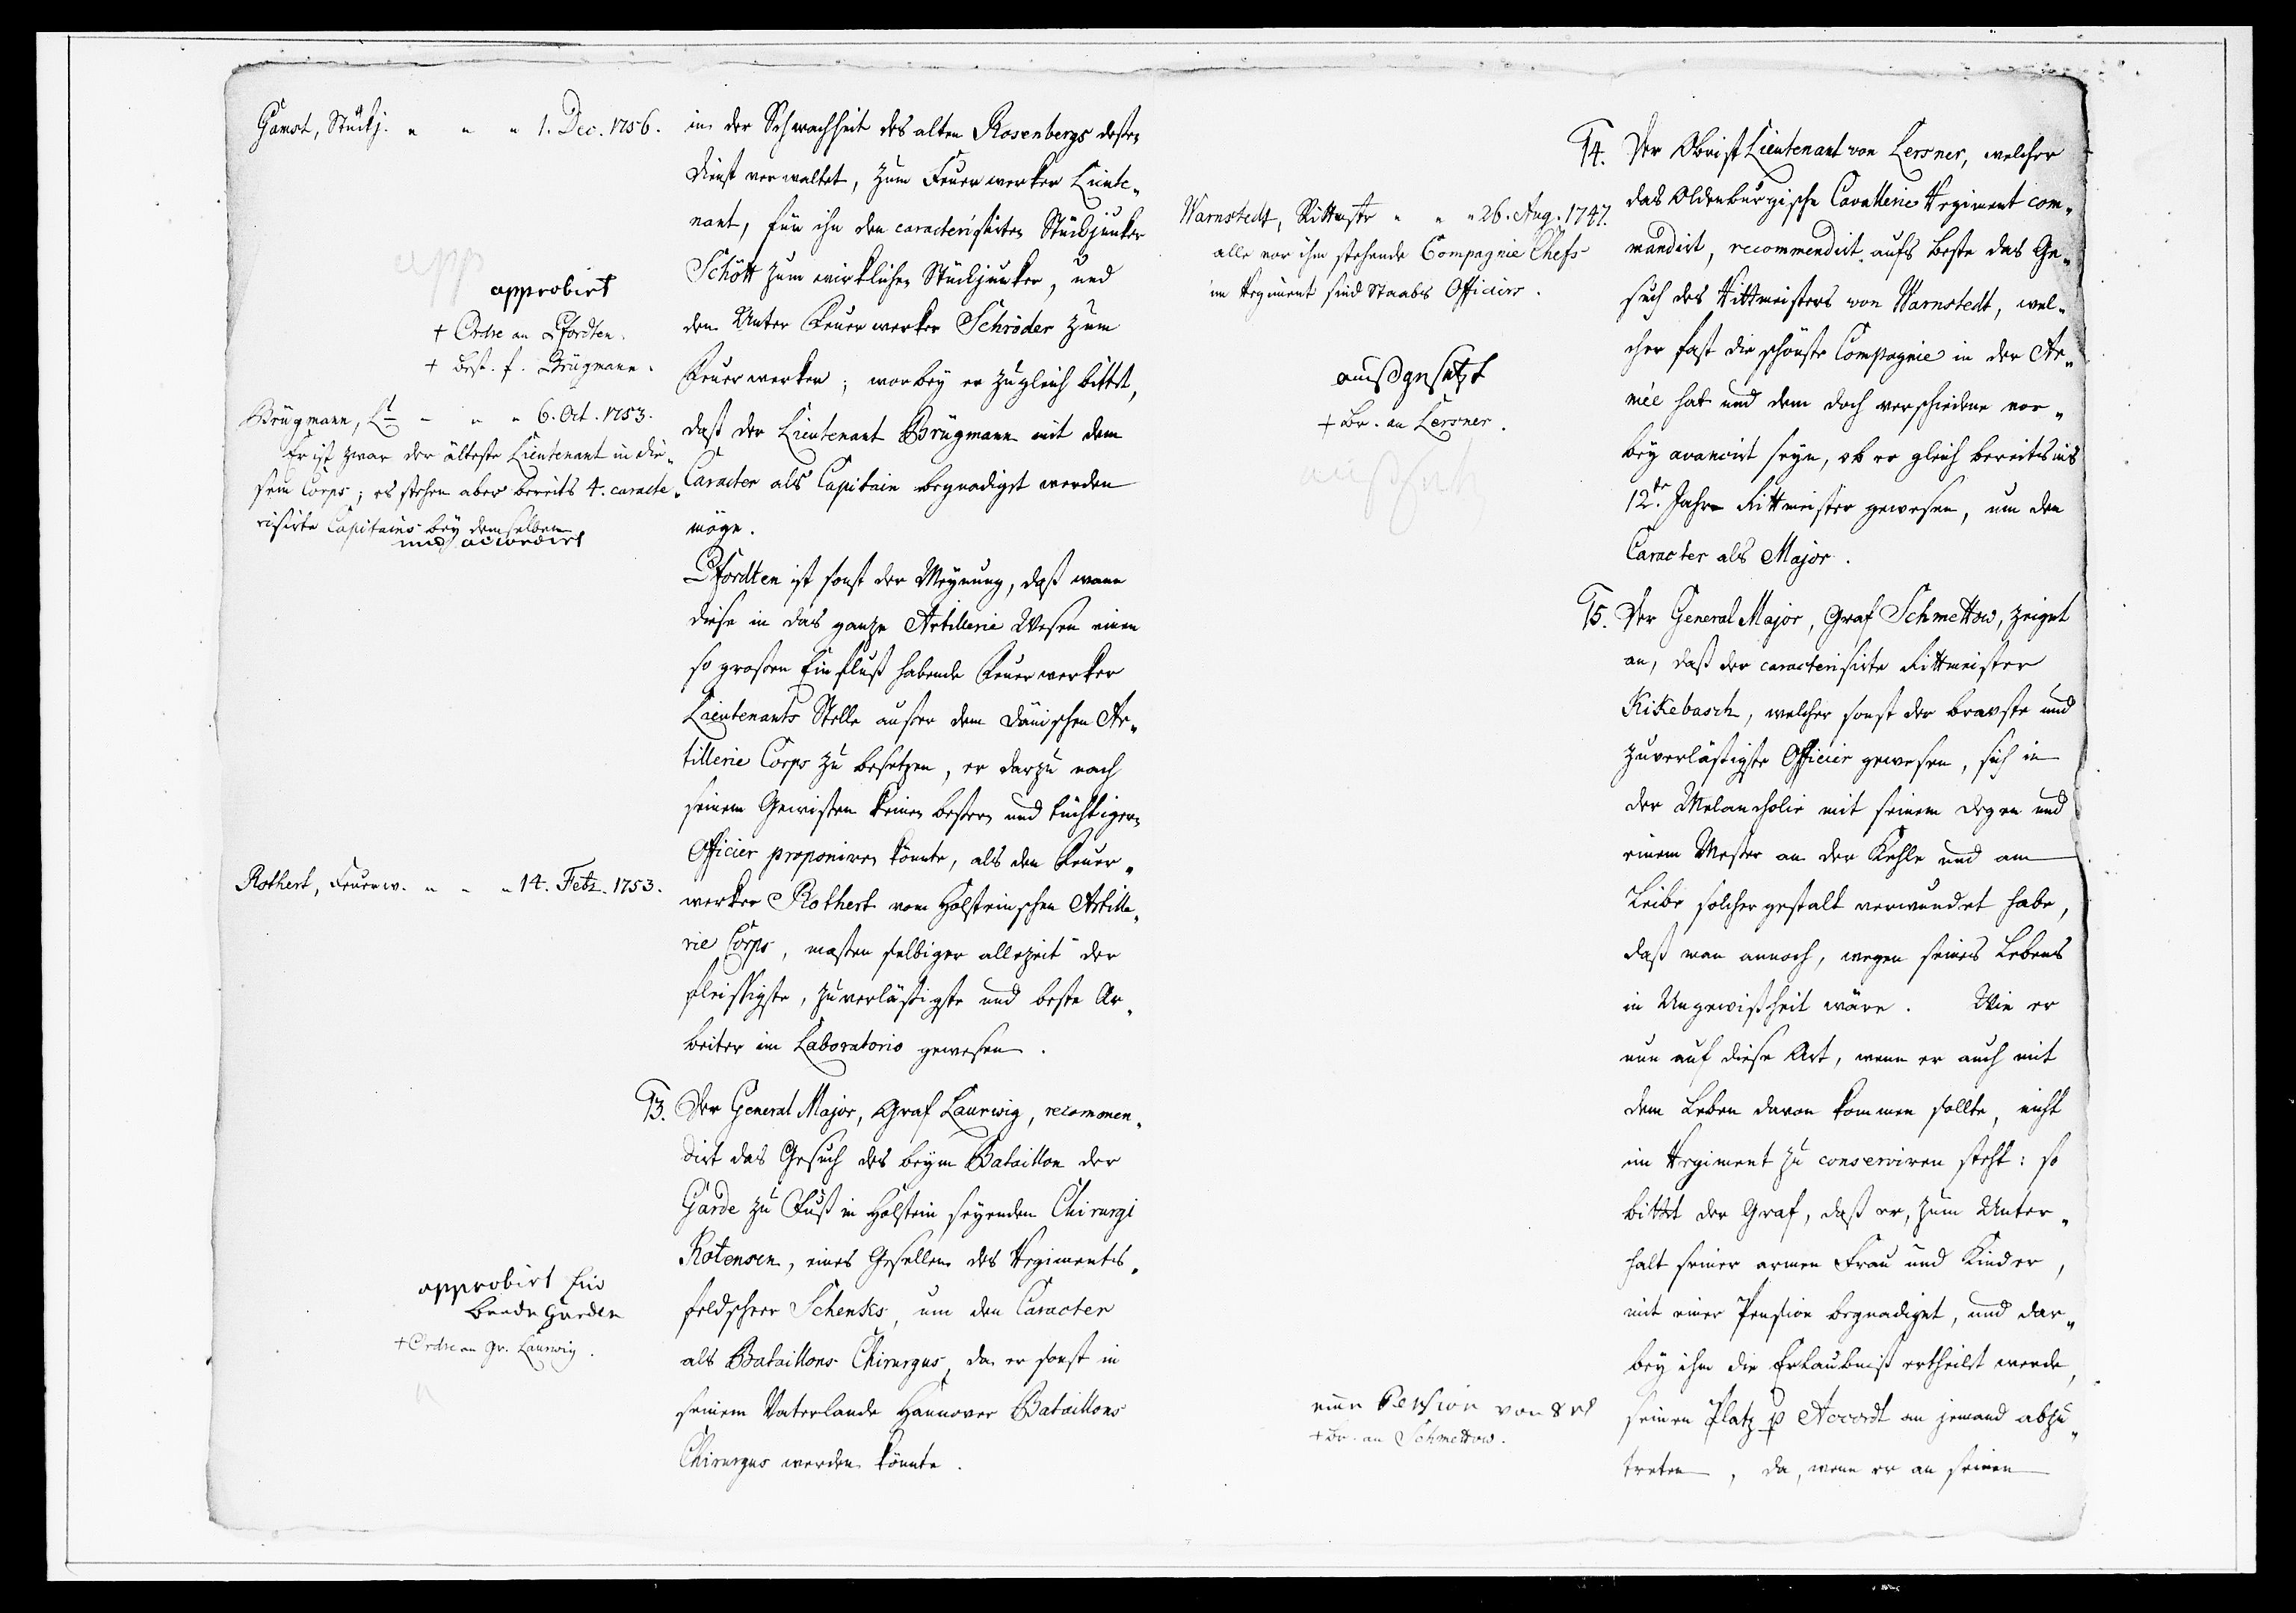 Gamst, Stückj. „ „ „ 1. Dec. 1756.
approbirt
+ Ordre an Pfordten.
+ best. f. Brügmann.
Brügmann, Lt – „ „ 6. Oct. 1753.
Er ist zwar der älteste Lieutenant in die„
sem Corps; es stehen aber bereits 4. caracte„
risirte Capitains bey demselben
wird accordirt
Rothert, Feuerw. „ „ „ 14. Febr. 1753.
approbirt für
beede Garden
+ Ordre an Gr. Laurwig.
in der Schwachheit des alten Rosenbergs deßen
Dienst verwaltet, zum Feuerwerker Lieute„
nant, für ihn den caracterisirten Stückjunker
Schött zum wirklichen Stückjunker, und
den Unter Feuerwerker Schröder zum
Feuerwerker;worbey er zugleich bittet,
daß der Lieutenant Brügmann mit dem
Caracter als Capitain begnadigt werden
möge.
Pfordten ist sonst der Meynung, daß wann
diese in das ganze Artillerie Wesen einen
so großen Einfluß habende Feuerwerker
Lieutenants Stelle außer dem Dänischen Ar„
tillerie Corps zu besetzen, er darzu nach
seinem Gewißen keinen beßern und tüchtigern
Officier proponiren könnte, als den Feuer„
werker Rothert vom Holsteinschen Artille„
rie Corps, maßen selbiger allezeit der
fleissigste, zuverläßigste und beste Ar„
beiter im Laboratorio gewesen.
13. Der General Major, Graf Laurwig, recommen„
dirt das Gesuch des beym Bataillon der
Garde zu Fuß in Holstein seyenden Chirurgi
Rotensen, eines Gesellen des Regiments„
feldscheer Schenks, um den Caracter
als Bataillons Chirurgus, da er sonst in
seinem Vaterlande Hannover Bataillons
Chirurgus werden könnte.
Warnstedt, Rittmstr „ „ „ 26. Aug. 1747.
alle vor ihm stehende Compagnie Chefs
im Regiment sind Staabs Officiers.
ausgesetzt
+ Br. an Lersner.
eine Pension von 8 rl
+ Br. an Schmettow.
14. Der Obrist Lieutenant von Lersner, welcher
das Oldenburgische Cavallerie Regiment com„
mandirt, recommendirt aufs beste das Ge„
such des Rittmeisters von Warnstedt, wel„
cher fast die schönste Compagnie in der Ar„
mée hat und dem doch verschiedene vor„
bey avancirt seyn, ob er gleich bereits ins
12te. Jahr Rittmeister gewesen, um den
Caracter als Major.
15. Der General Major, Graf Schmettow, zeiget
an, daß der caracterisirte Rittmeister
Kikebasch, welcher sonst der bravste und
zuverläßigste Officier gewesen, sich in
der Melancholie mit seinem Degen und
einem Meßer an der Kehle und am
Leibe solchergestalt verwundet habe,
daß man annoch, wegen seines Lebens
in Ungewißheit wäre. Wie er
nun auf diese Art, wenn er auch mit
dem Leben davon kommen sollte, nicht
im Regiment zu conserviren steht: so
bittet der Graf, daß er, zum Unter„
halt seiner armen Frau und Kinder,
mit einer Pension begnadiget, und dar„
bey ihm die Erlaubniß ertheilet werde,
seinen Platz p Accordt an jemand abzu„
treten, da, wenn er an seinen